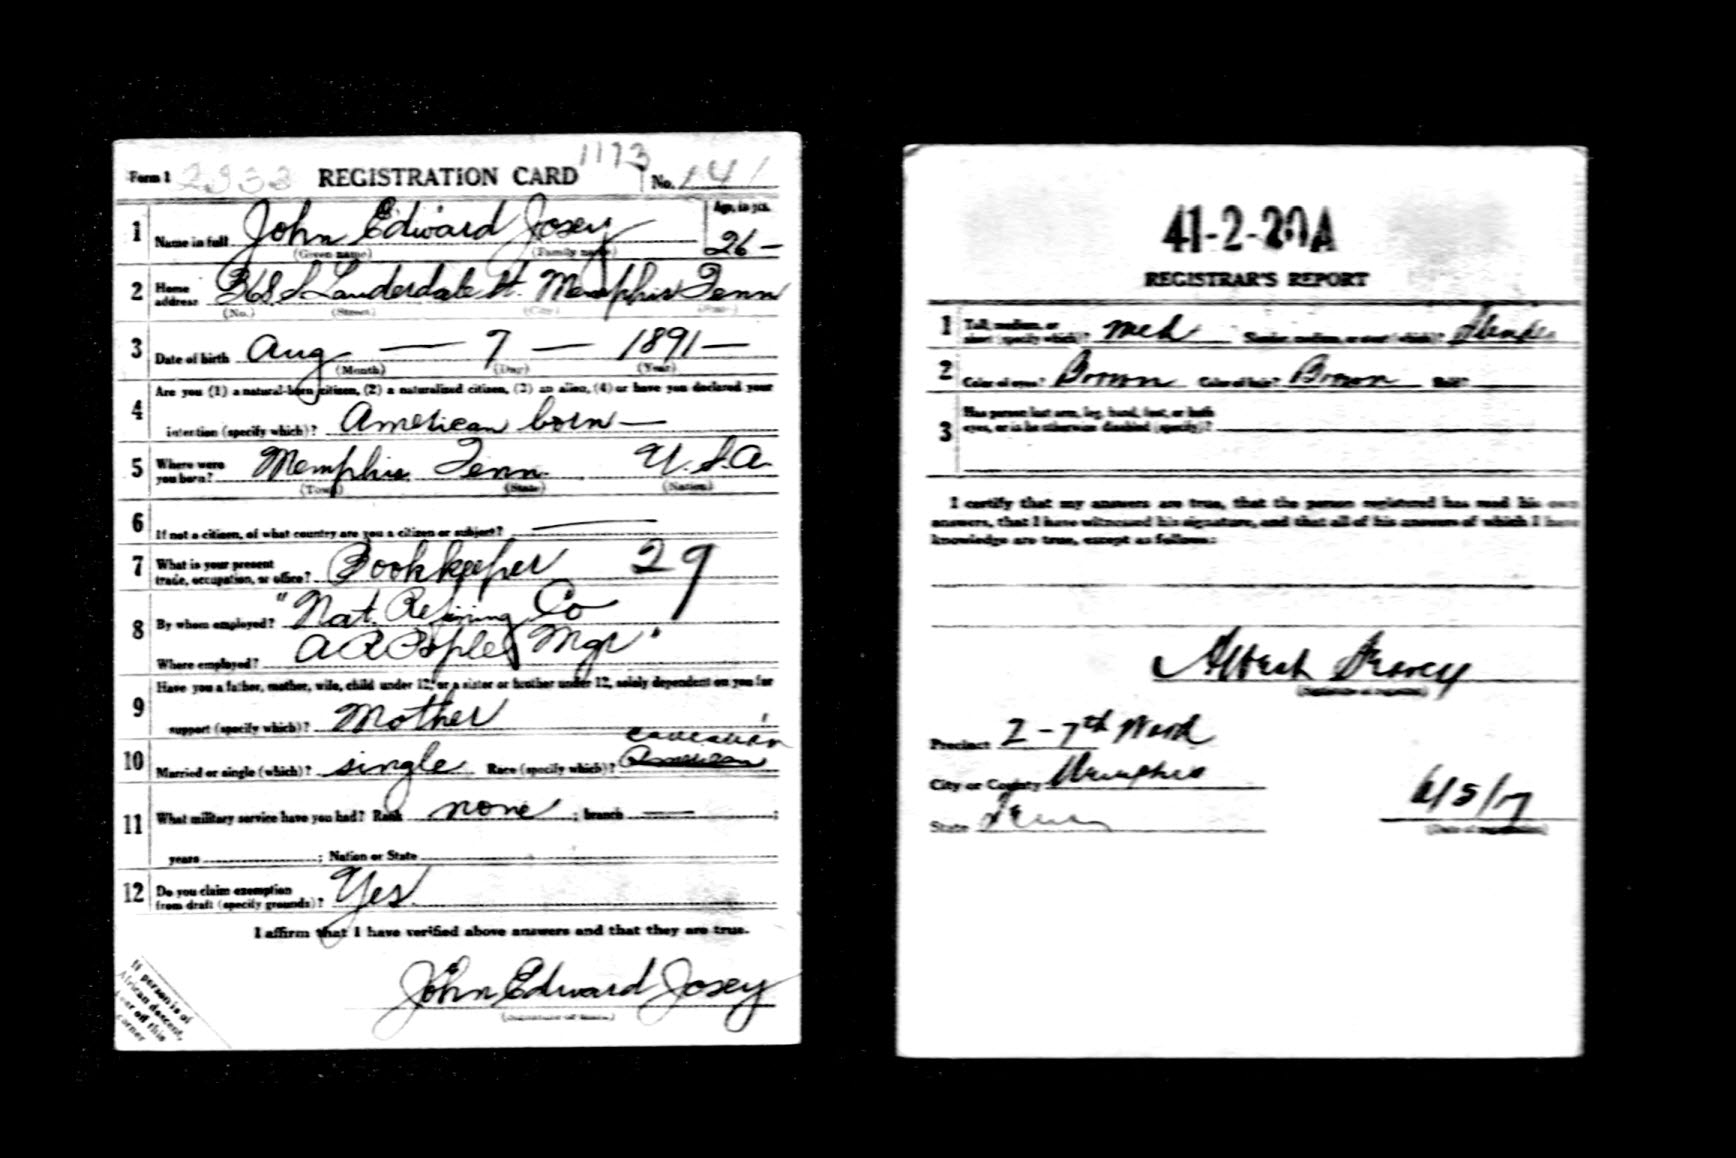 Form 1 2332 REGISTRATION CARD 1173 No. 141
1 Name in full John Edward Josey Age, in yrs. 26 —
(Given name) (Family name)
2 Home address 368 S Lauderdale St. Memphis Tenn
(No.) (Street) (City) (State)
3 Date of birth Aug — 7 — 1891 —
(Month) (Day) (Year)
4 Are you (1) a natural-born citizen, (2) a naturalized citizen, (3) an alien, (4) or have you declared your
intention (specify which)? American born —
5 Where were you born? Memphis Tenn. U.S.A.
(Town) (State) (Nation)
6 If not a citizen, of what country are you a citizen or subject? —
7 What is your present trade, occupation, or office? Bookkeeper 29
8 By whom employed? "Nat. Refining Co
Where employed? A R Peoples Mgr"
9 Have you a father, mother, wife, child under 12, or a sister or brother under 12, solely dependent on you for
support (specify which)? Mother
caucasian
10 Married or single (which)? single Race (specify which)? American
11 What military service have you had? Rank none ; branch — ;
years ; Nation or State
12 Do you claim exemption from draft (specify grounds)? Yes
I affirm that I have verified above answers and that they are true.
John Edward Josey
If person is of
African descent,
tear off this
corner
41-2-20A
REGISTRAR'S REPORT
1 Tall, medium, or short (specify which)? med Slender, medium, or stout (which)? Slender
2 Color of eyes? Brown Color of hair? Brown Bald?
3 Has person lost arm, leg, hand, foot, or both
eyes, or is he otherwise disabled (specify)?
I certify that my answers are true, that the person registered has read his own
answers, that I have witnessed his signature, and that all of his answers of which I have
knowledge are true, except as follows:
Albert
(Signature of registrar)
Precinct 2 - 7th Ward
City or County Memphis
State Tenn 6/5/17
(Date of registration)